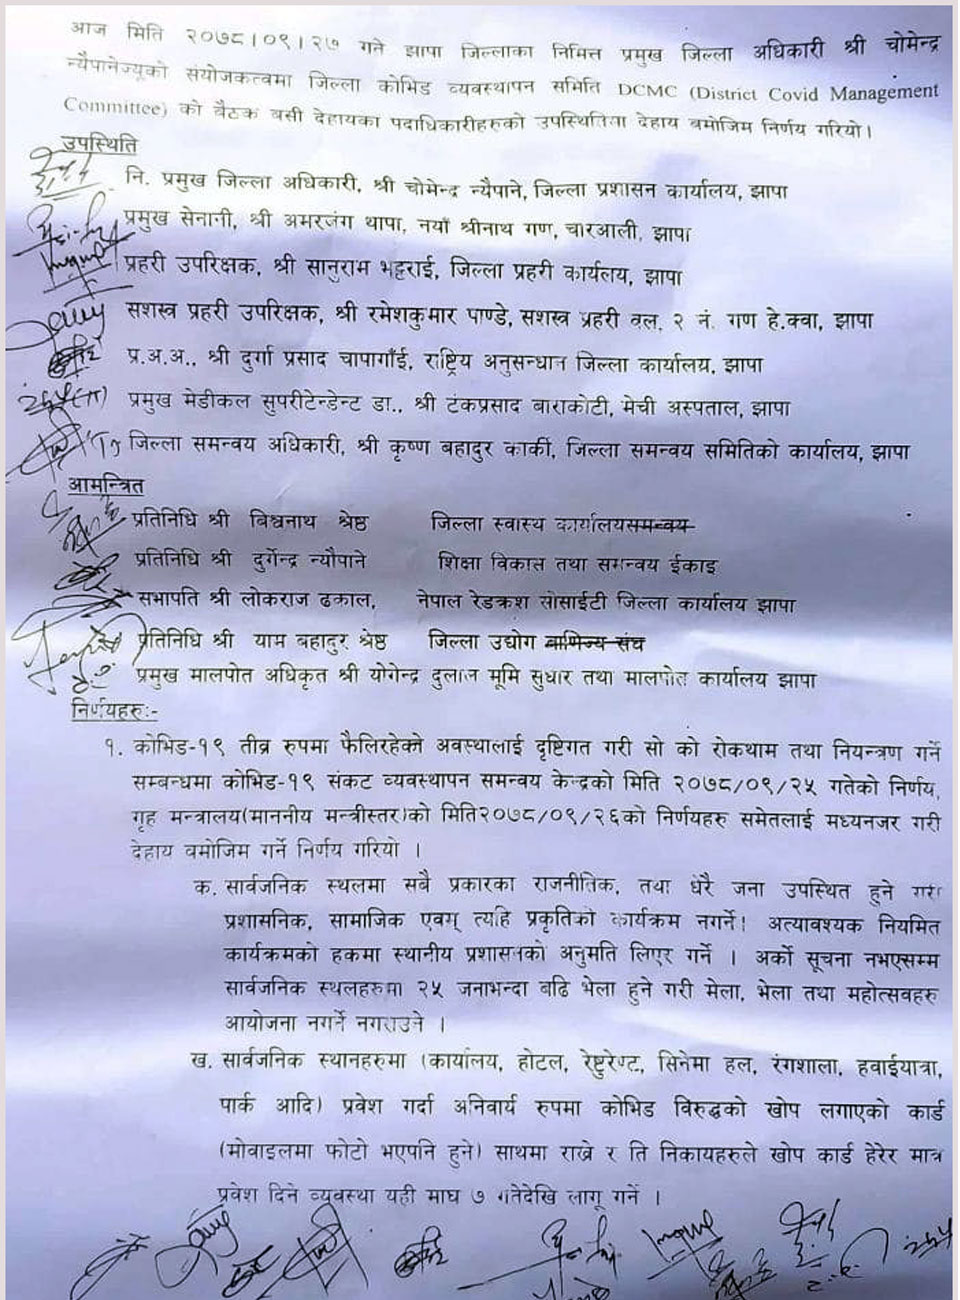 आज मिति २०७८।०९।२७ गते झापा जिल्लाका निमित्त प्रमुख जिल्ला अधिकारी श्री चोमेन्द्र
न्यैपानेज्यूको संयोजकत्वमा जिल्ला कोभिड व्यवस्थापन समिति DCMC (District Covid Management
Committee) को बैठक बसी देहायका पदाधिकारीहरुको उपस्थितिमा देहाय बमोजिम निर्णय गरियो।
उपस्थिति
नि. प्रमुख जिल्ला अधिकारी, श्री चोमेन्द्र न्यैपाने, जिल्ला प्रशासन कार्यालय, झापा
प्रमुख सेनानी, श्री अमरजंग थापा, नयाँ श्रीनाथ गण, चारआली, झापा
प्रहरी उपरिक्षक, श्री सानुराम भट्टराई, जिल्ला प्रहरी कार्यलय, झापा
सशस्त्र प्रहरी उपरिक्षक, श्री रमेशकुमार पाण्डे, सशस्त्र प्रहरी वल, २ नं. गण हे.क्वा, झापा
प्र.अ.अ., श्री दुर्गा प्रसाद चापागाँई, राष्ट्रिय अनुसन्धान जिल्ला कार्यालय, झापा
प्रमुख मेडीकल सुपरीटेन्डेन्ट डा., श्री टंकप्रसाद बाराकोटी, मेची अस्पताल, झापा
जिल्ला समन्वय अधिकारी, श्री कृष्ण बहादुर कार्की, जिल्ला समन्वय समितिको कार्यालय, झापा
आमन्त्रित
प्रतिनिधि श्री विश्वनाथ श्रेष्ठ जिल्ला स्वास्थ कार्यालयसमन्वय
प्रतिनिधि श्री दुर्गेन्द्र न्यौपाने शिक्षा विकास तथा समन्वय ईकाइ
सभापति श्री लोकराज ढकाल, नेपाल रेडक्रश सोसाईटी जिल्ला कार्यालय झापा
प्रतिनिधि श्री याम बहादुर श्रेष्ठ जिल्ला उद्योग बाणिज्य संघ
प्रमुख मालपोत अधिकृत श्री योगेन्द्र दुलाल भूमि सुधार तथा मालपोत कार्यालय झापा
निर्णयहरु:-
१. कोभिड-१९ तीव्र रुपमा फैलिरहेको अवस्थालाई दृष्टिगत गरी सो को रोकथाम तथा नियन्त्रण गर्ने
सम्बन्धमा कोभिड-१९ संकट व्यवस्थापन समन्वय केन्द्रको मिति २०७८/०९/२५ गतेको निर्णय,
गृह मन्त्रालय(माननीय मन्त्रीस्तर)को मिति२०७८/०९/२६को निर्णयहरु समेतलाई मध्यनजर गरी
देहाय वमोजिम गर्ने निर्णय गरियो ।
क. सार्वजनिक स्थलमा सबै प्रकारका राजनीतिक, तथा धेरै जना उपस्थित हुने गरी
प्रशासनिक, सामाजिक एवम् त्यहि प्रकृतिको कार्यक्रम नगर्ने। अत्यावश्यक नियमित
कार्यक्रमको हकमा स्थानीय प्रशासनको अनुमति लिएर गर्ने । अर्को सूचना नभएसम्म
सार्वजनिक स्थलहरुमा २५ जनाभन्दा बढि भेला हुने गरी मेला, भेला तथा महोत्सवहरु
आयोजना नगर्ने नगराउने ।
ख. सार्वजनिक स्थानहरुमा (कार्यालय, होटल, रेष्टुरेण्ट, सिनेमा हल, रंगशाला, हवाईयात्रा,
पार्क आदि) प्रवेश गर्दा अनिवार्य रुपमा कोभिड विरुद्धको खोप लगाएको कार्ड
(मोवाइलमा फोटो भएपनि हुने) साथमा राख्ने र ति निकायहरुले खोप कार्ड हेरेर मात्र
प्रवेश दिने व्यवस्था यही माघ ७ गतेदेखि लागू गर्ने ।